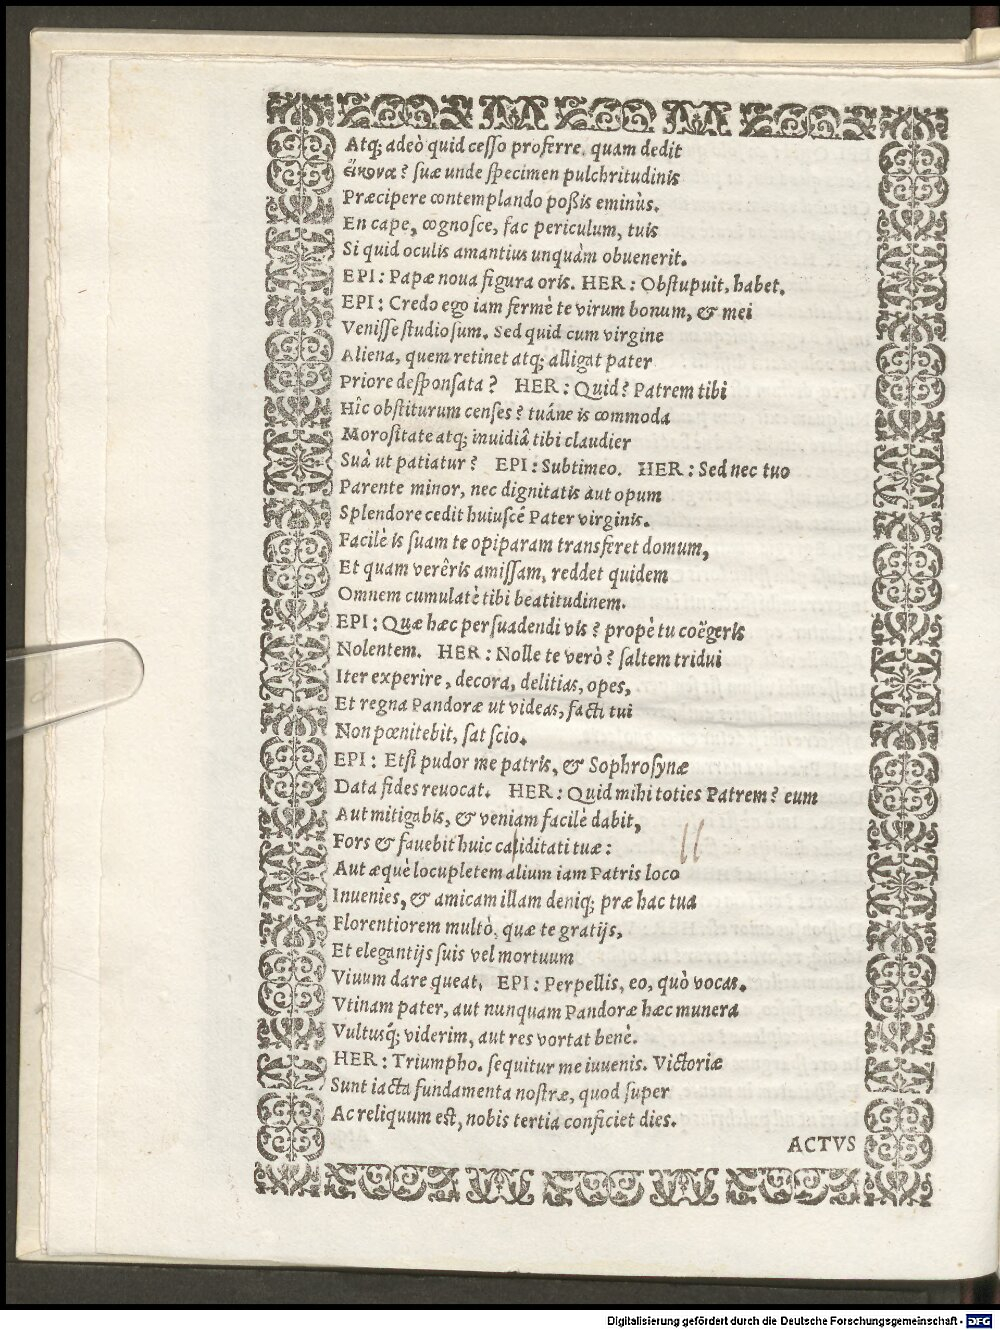 Atq; adeò quid cesso proferre, quam dedit
εἴκονα? suæ unde specimen pulchritudinis
Præcipere contemplando poßis eminùs.
En cape, cognosce, fac periculum, tuis
Si quid oculis amantius unquàm obuenerit.
EPI: Papæ noua figura oris. HER: Obstupuit, habet.
EPI: Credo ego iam fermè te virum bonum, & mei
Venisse studiosum. Sed quid cum virgine
Aliena, quem retinet atq; alligat pater
Priore desponsata? HER: Quid? Patrem tibi
Hîc obstiturum censes? tuáne is commoda
Morositate atq; inuidiâ tibi claudier
Suâ ut patiatur? EPI: Subtimeo. HER: Sed nec tuo
Parente minor, nec dignitatis aut opum
Splendore cedit huiuscé Pater virginis.
Facilè is suam te opiparam transferet domum,
Et quam verêris amissam, reddet quidem
Omnem cumulatè tibi beatitudinem.
EPI: Quæ hæc persuadendi vis? propè tu coëgeris
Nolentem. HER: Nolle te verò? saltem tridui
Iter experire, decora, delitias, opes,
Et regna Pandoræ ut videas, facti tui
Non pœnitebit, sat scio.
EPI: Etsi pudor me patris, & Sophrosynæ
Data fides reuocat. HER: Quid mihi toties Patrem? eum
Aut mitigabis, & veniam facilè dabit,
Fors & fauebit huic caliditati tuæ:
Aut æquè locupletem alium iam Patris loco
Inuenies, & amicam illam deniq; præ hac tua
Florentiorem multò, quæ te gratijs,
Et elegantijs suis vel mortuum
Viuum dare queat. EPI: Perpellis, eo, quò vocas.
Vtinam pater, aut nunquam Pandoræ hæc munera
Vultusq́; viderim, aut res vortat benè.
HER: Triumpho. sequitur me iuuenis. Victoriæ
Sunt iacta fundamenta nostræ, quod super
Ac reliquum est, nobis tertia conficiet dies.
ACTVS
Digitalisierung gefördert durch die Deutsche Forschungsgemeinschaft - DFG